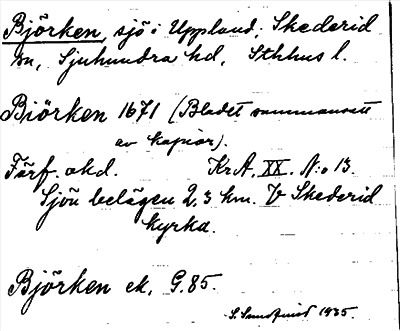 Björken, sjö i Uppland, Skederid
sn, Sjuhundra hd, Sthlms l.
Biörken 1671 (Bladet sammansatt
av kopior).
Förf. okd. KrA. XX. N:o 13.
Sjön belägen 2,3 km. V Skederid
kyrka.
Björken ek. G.85.
S. Sundquist 1935.